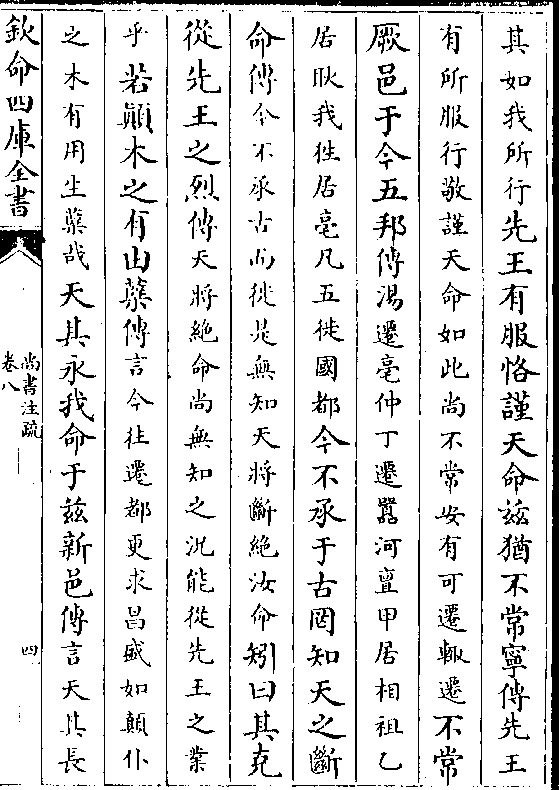 其如我所行先王有服恪謹天命茲猶不常寧傳先王
有所服行敬謹天命如此尚不常安有可遷輒遷不常
厥邑于今五邦傳湯遷亳仲丁遷囂河亶甲居相祖乙
居耿我徃居亳凡五徙國都今不承于古罔知天之斷
命傳今不承古而徙是無知天將斷絶汝命矧曰其克
從先王之烈傳天將絶命尚無知之況能從先王之業
乎若顛木之有由蘖傳言今徃遷都更求昌盛如顛仆
之木有用生蘖哉天其永我命于茲新邑傳言天其長
欽命四庫全書
尚書注疏
卷八
四